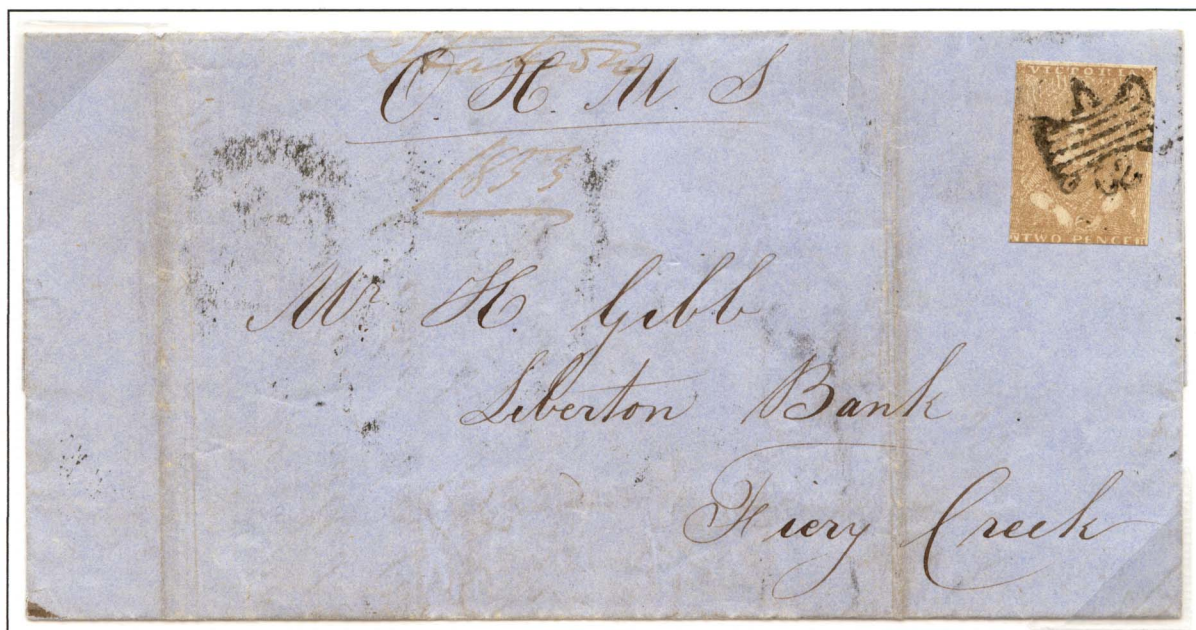 O H. M. S
1853
VICTORIA
TWO PENCE
Mr H. Gibb
Liberton Bank
Fiery Creek